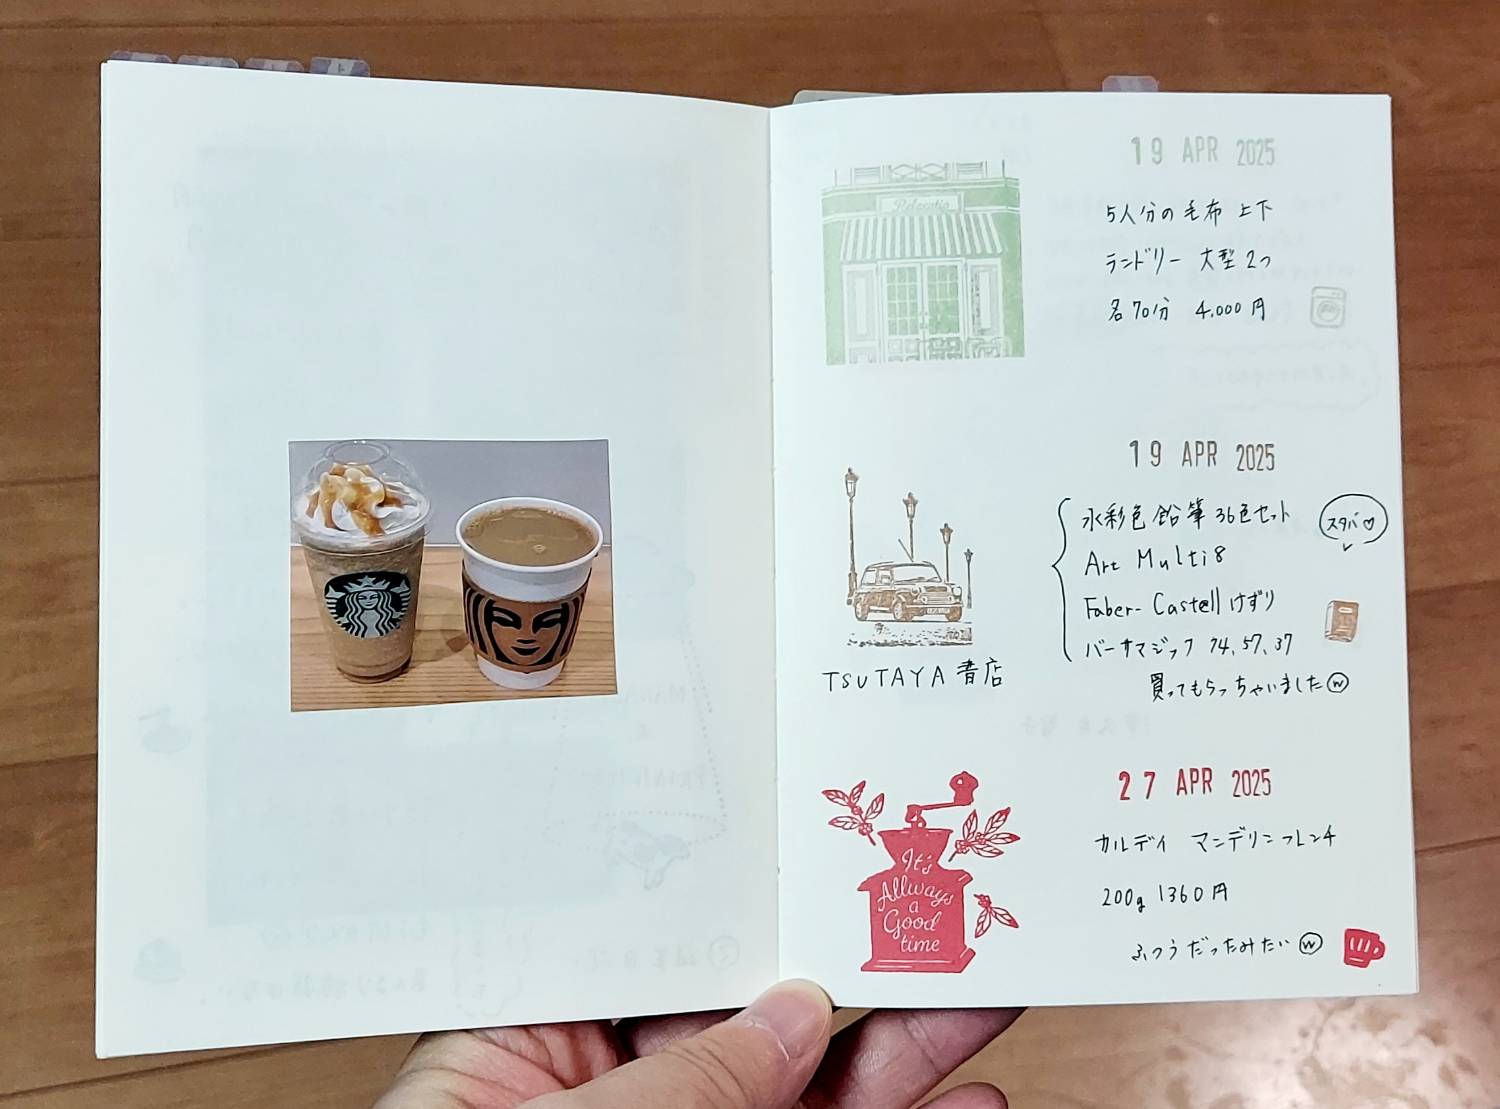 19 APR 2025
5人分の毛布 上下
ランドリー 大型2つ
各70分 4,000円
19 APR 2025
水彩色鉛筆36色セット
スタバ♡
Art Multi8
Faber-Castellけずり
バーサマジック 74、57、37
買ってもらっちゃいましたⓦ
TSUTAYA書店
27 APR 2025
It's
Allways
a
Good
time
カルディ マンデリンフレンチ
200g 1360円
ふつうだったみたいⓦ